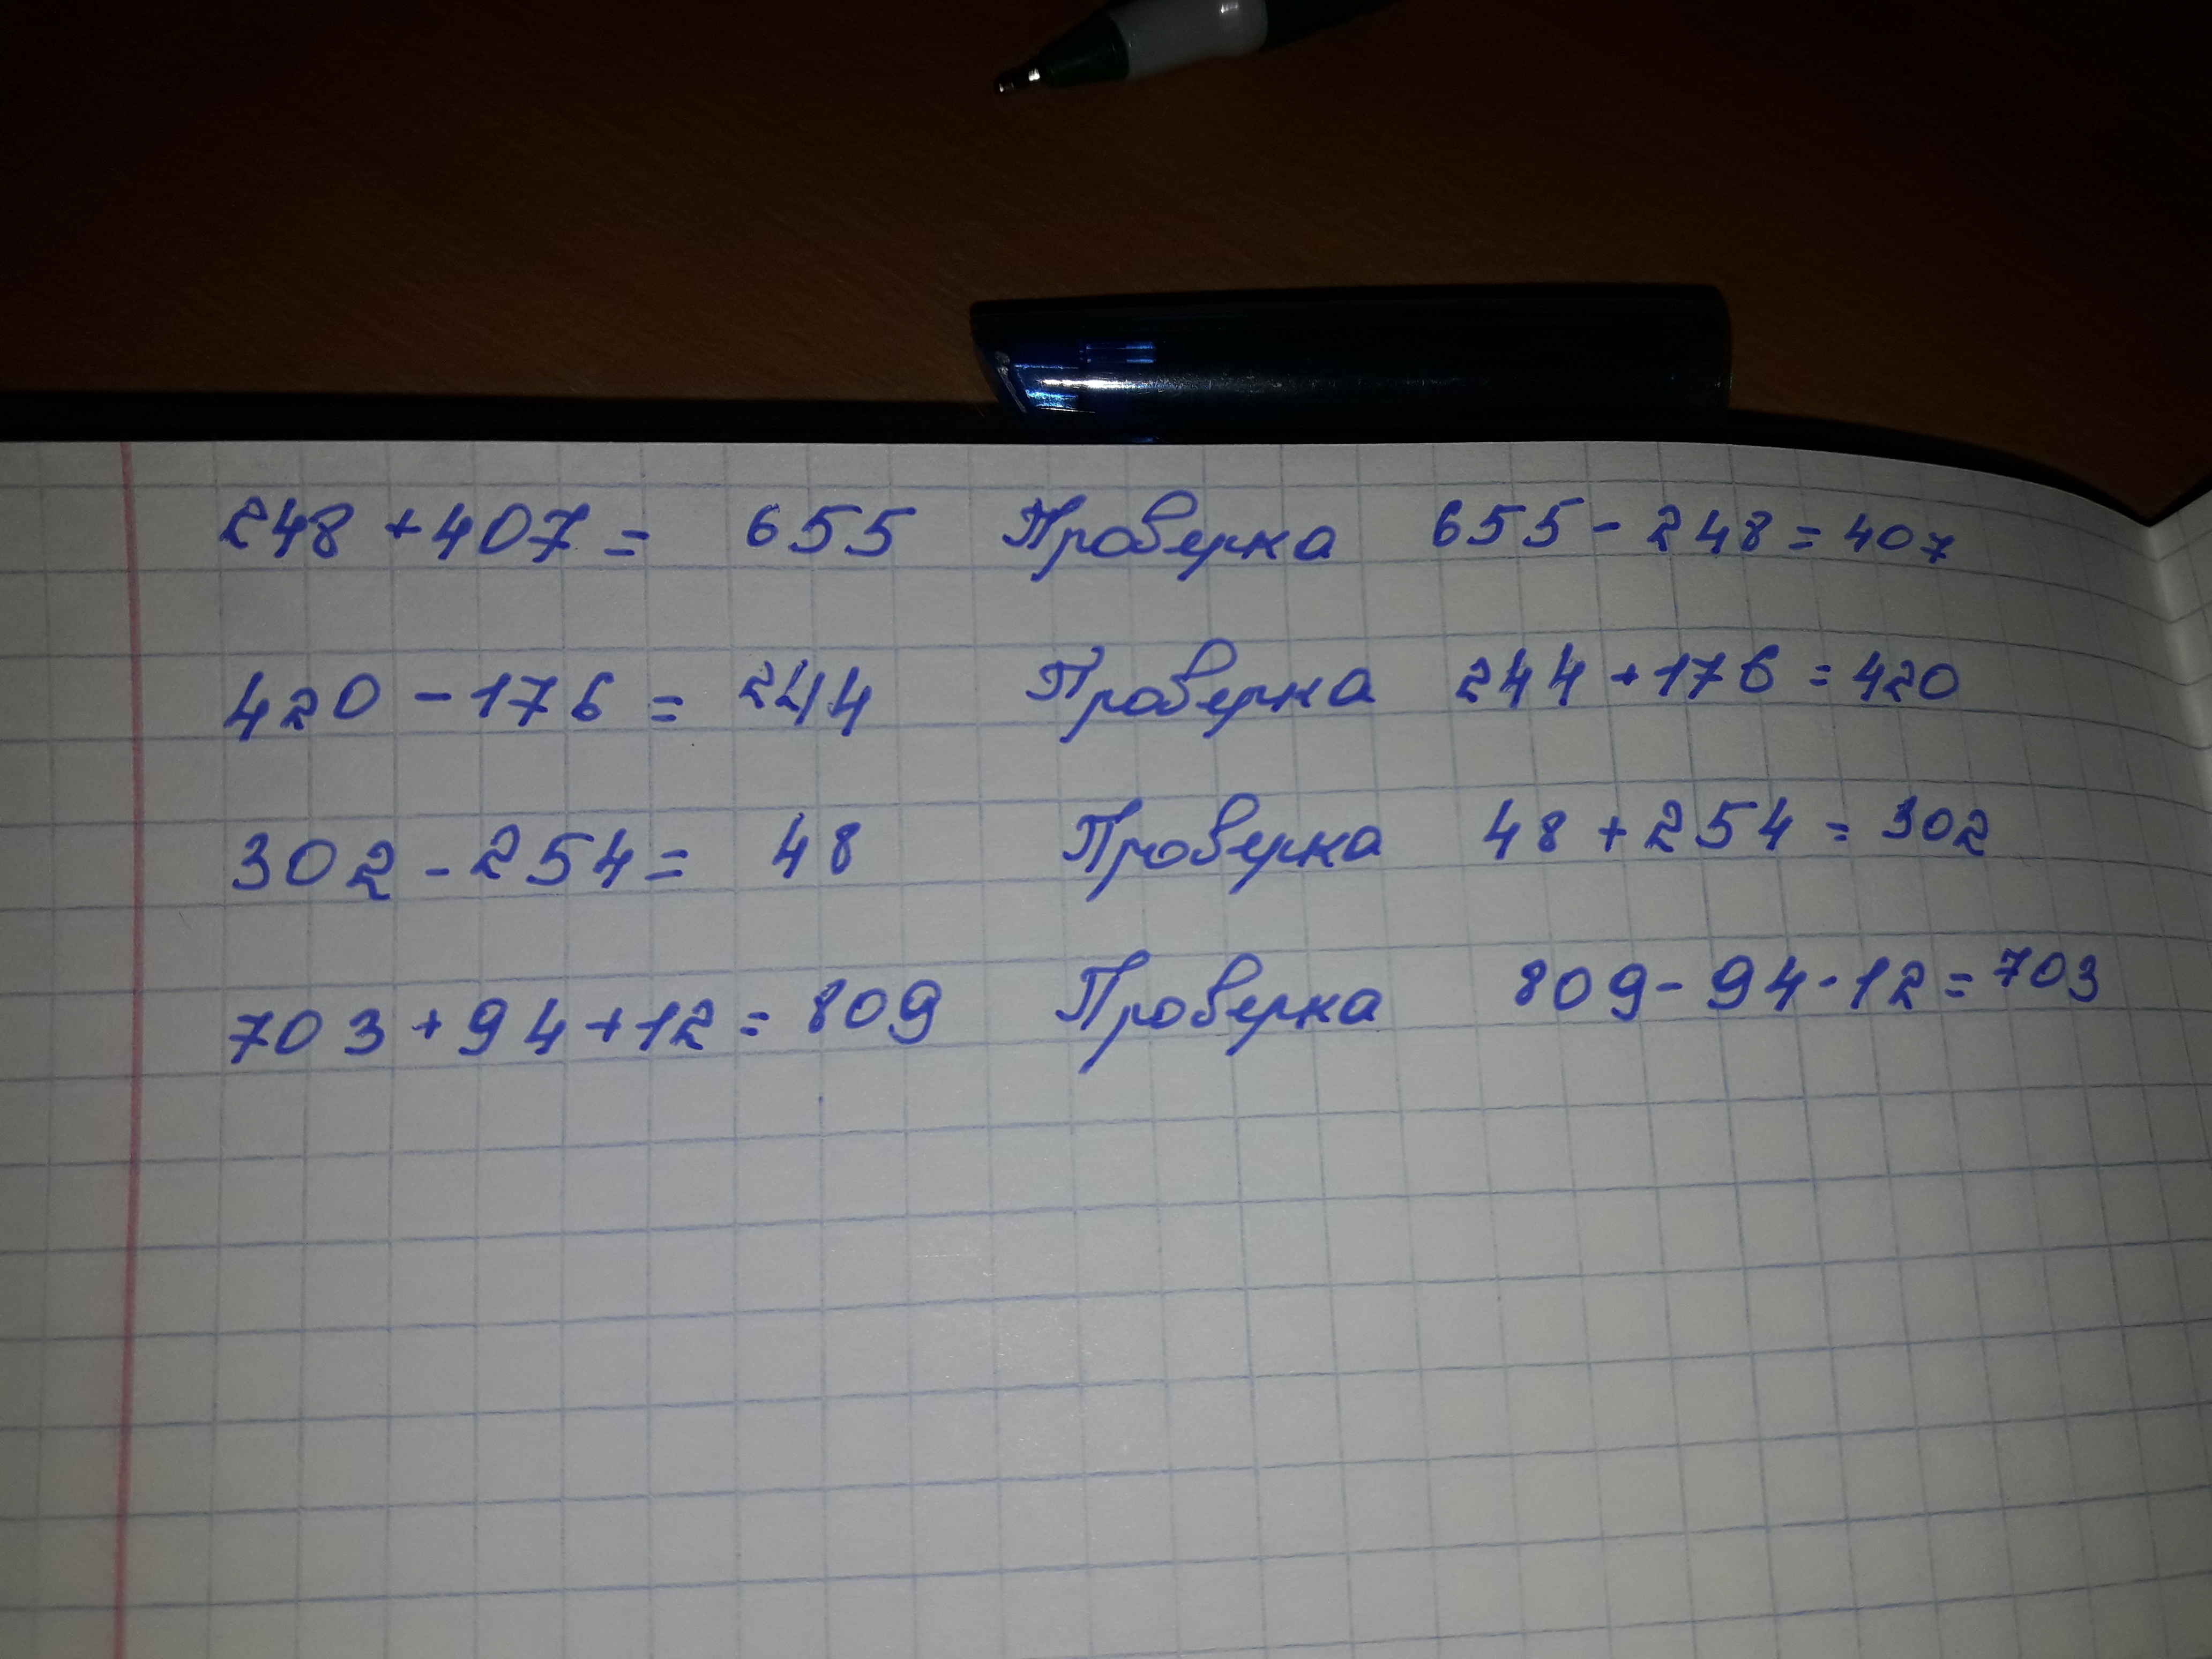 248 + 407 = 655 Проверка 655 - 248 = 407
420 - 176 = 244 Проверка 244 + 176 = 420
302 - 254 = 48 Проверка 48 + 254 = 302
703 + 94 + 12 = 809 Проверка 809 - 94 - 12 = 703